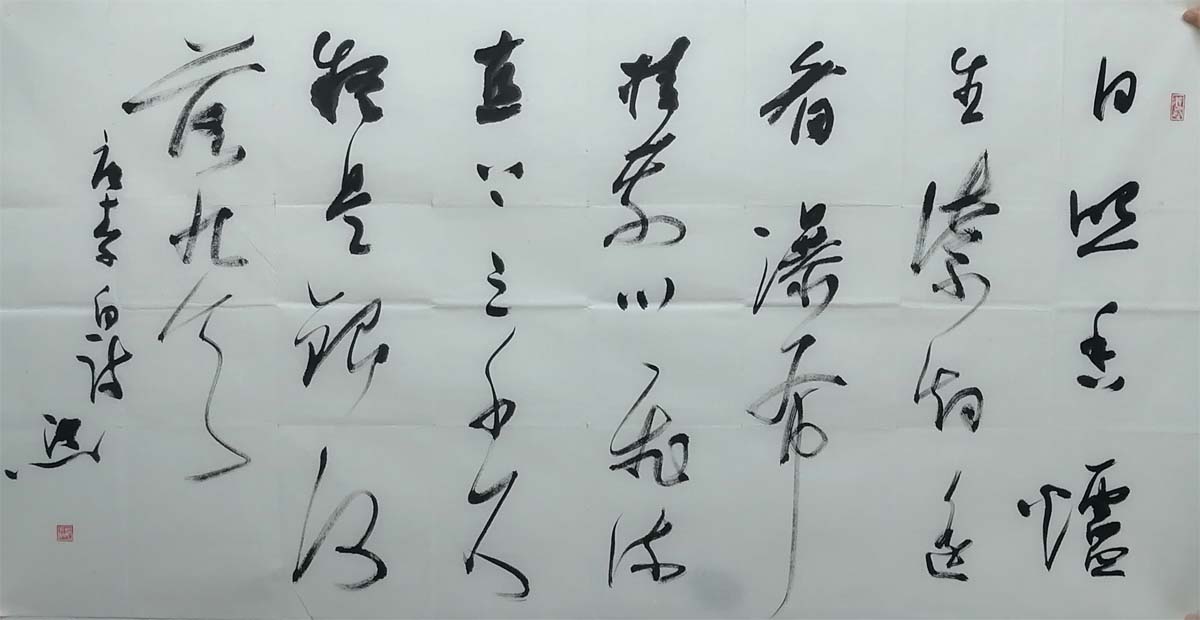 日照香爐
生紫烟遥
看瀑布
挂前川飛流
直下三千尺
疑是銀河
落九天
唐李白詩